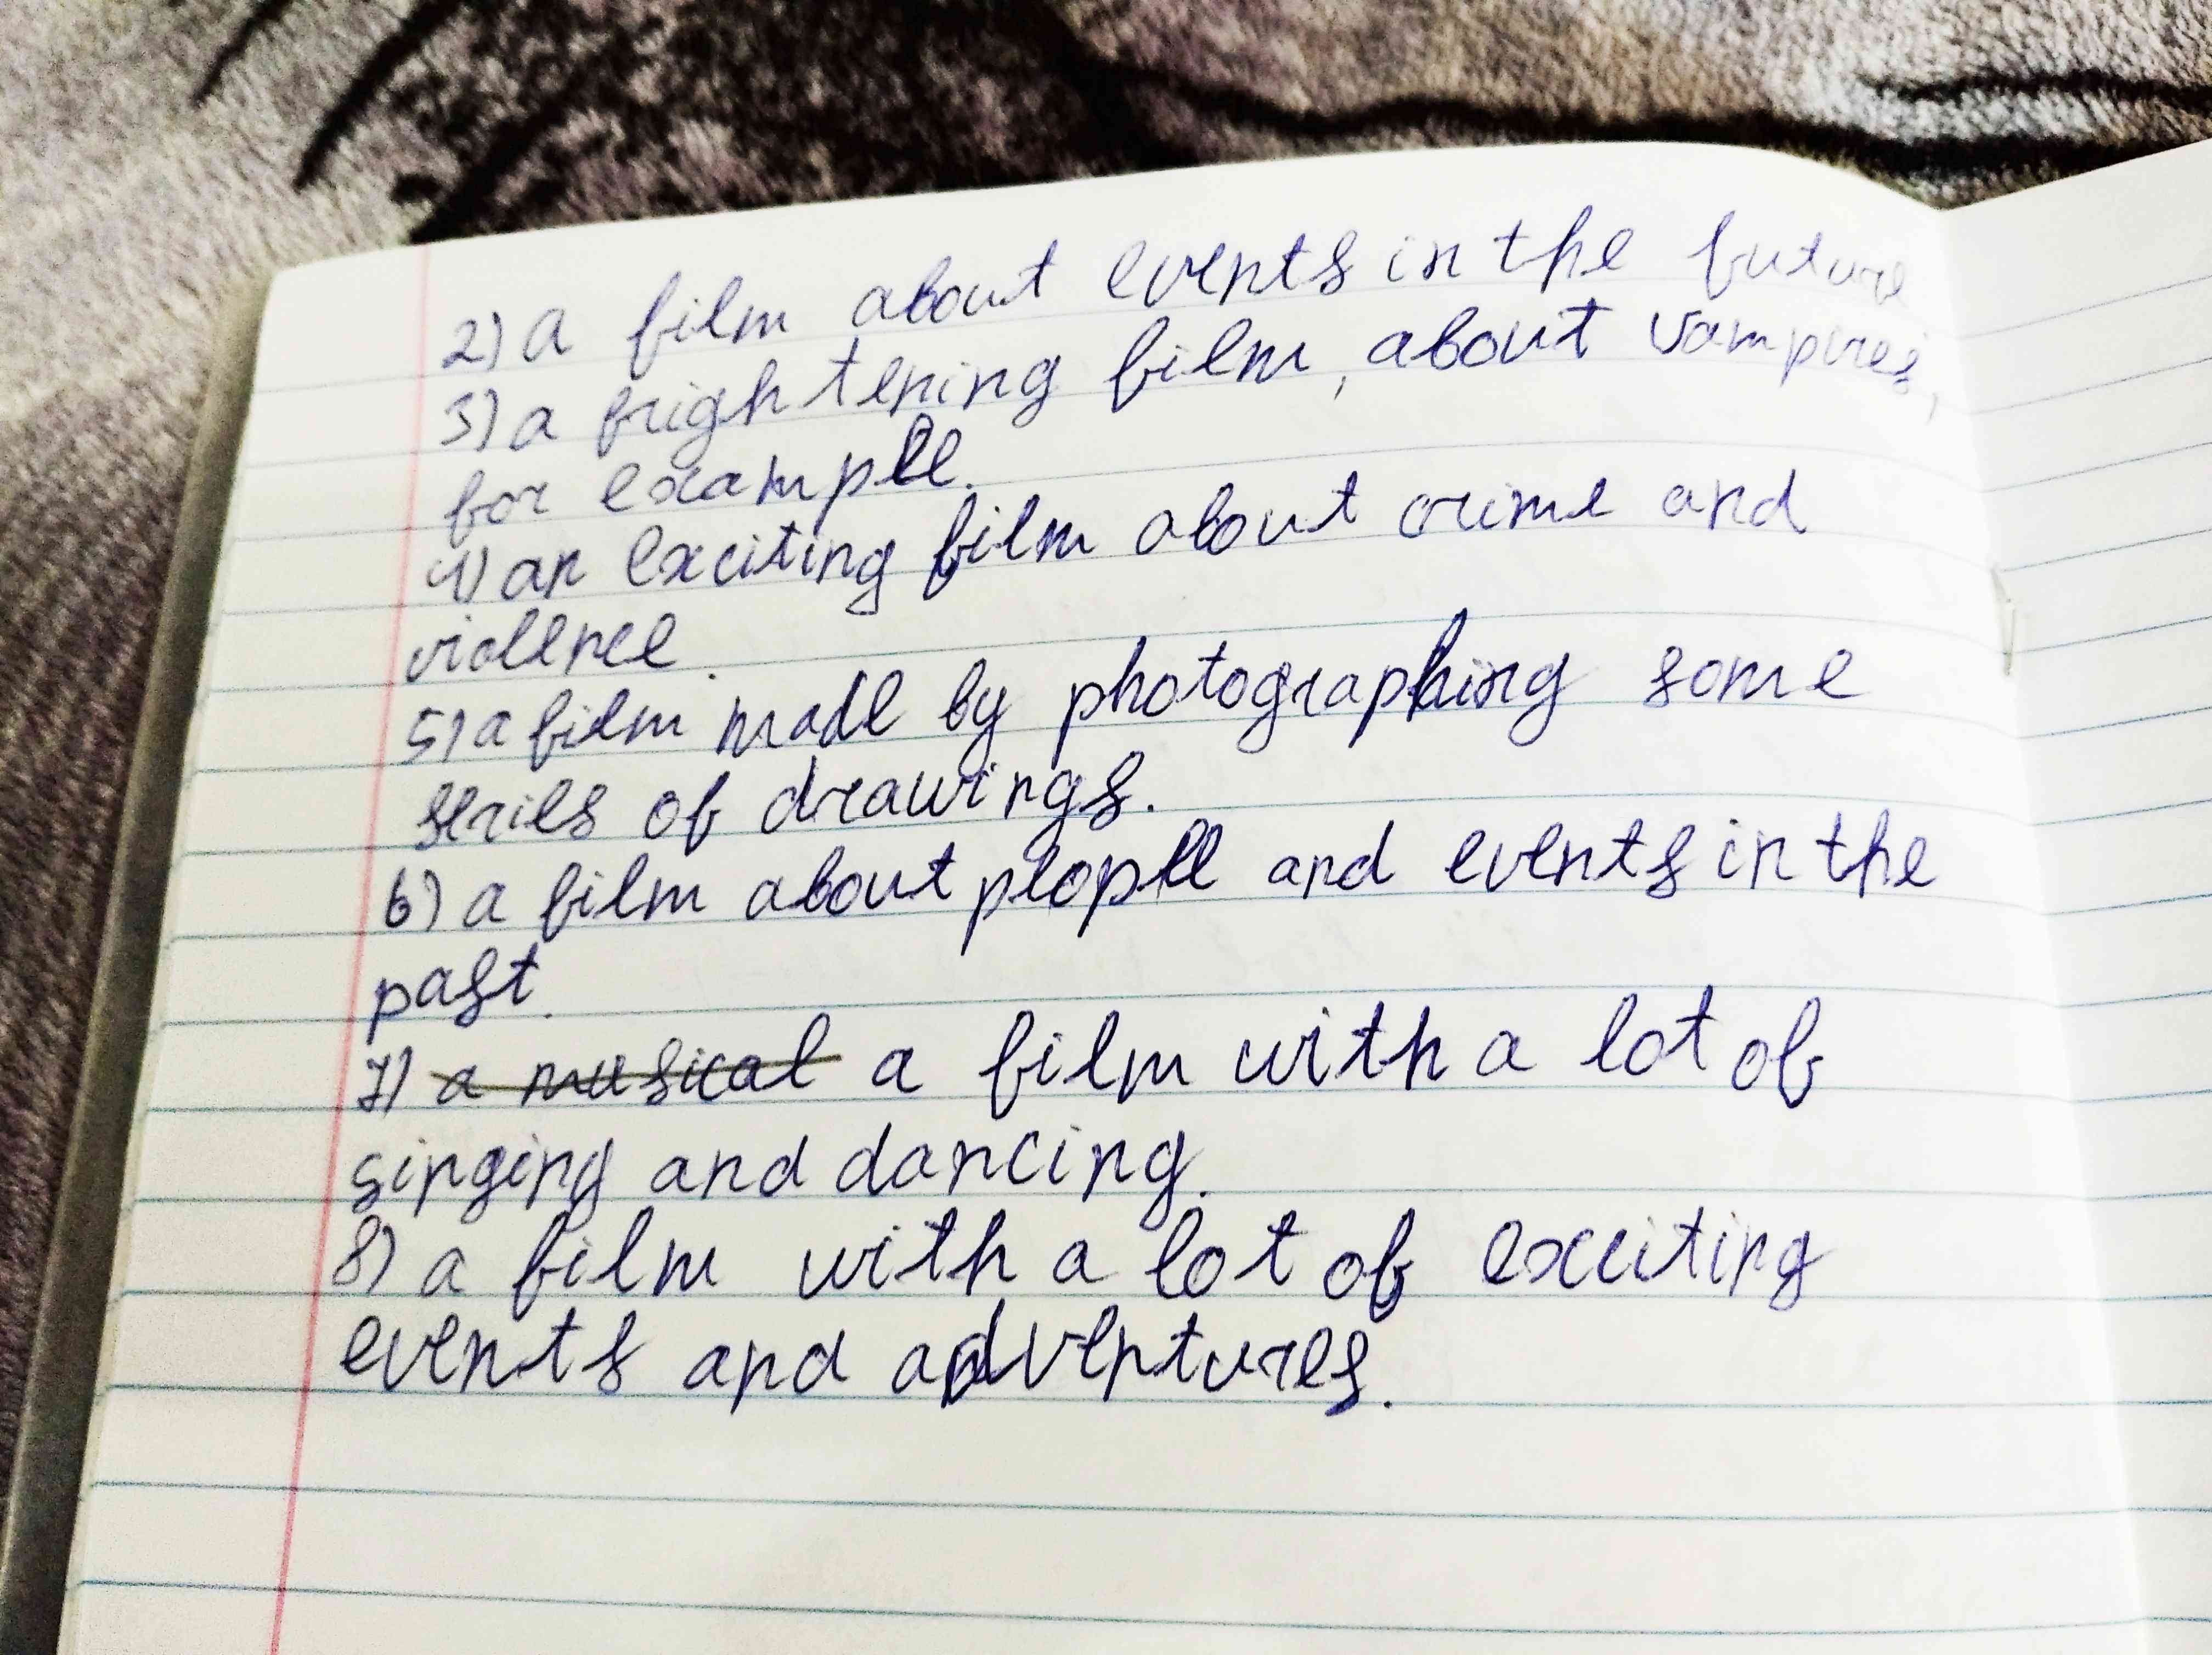 2) a film about events in the future
3) a frightening film, about vampires,
for example.
4) an exciting film about crime and
violence.
5) a film made by photographing some
series of drawings.
6) a film about people and events in the
past.
7) a musical a film with a lot of
singing and dancing.
8) a film with a lot of exciting
events and adventures.